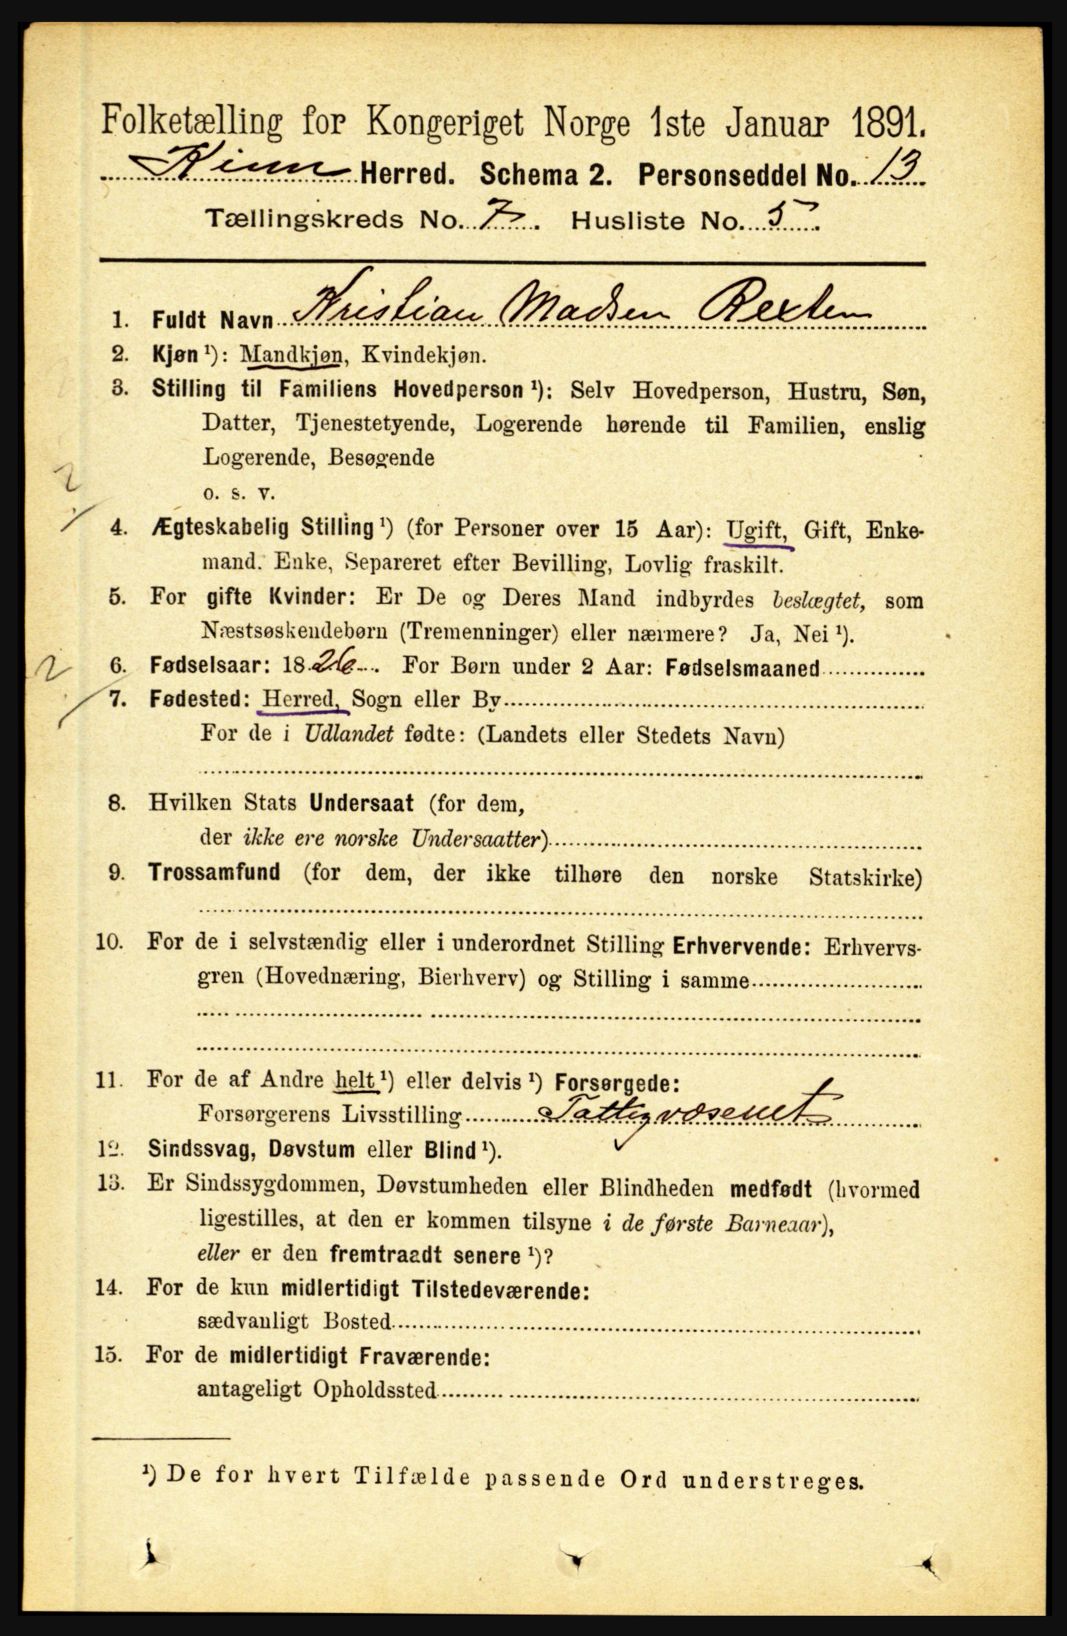 Folketælling for Kongeriget Norge 1ste Januar 1891.
Kinn Herred. Schema 2. Personseddel No. 13
Tællingskreds No. 7. Husliste No. 5.
1. Fuldt Navn Kristian Madsen Rexten
2. Kjøn ¹): Mandkjøn, Kvindekjøn.
3. Stilling til Familiens Hovedperson ¹): Selv Hovedperson, Hustru, Søn,
Datter, Tjenestetyende, Logerende hørende til Familien, enslig
Logerende, Besøgende
o. s. v.
2
4. Ægteskabelig Stilling ¹) (for Personer over 15 Aar): Ugift, Gift, Enke-
mand. Enke, Separeret efter Bevilling, Lovlig fraskilt.
5. For gifte Kvinder: Er De og Deres Mand indbyrdes beslægtet, som
Næstsøskendebørn (Tremenninger) eller nærmere? Ja, Nei ¹).
2
6. Fødselsaar: 1826. For Børn under 2 Aar: Fødselsmaaned
7. Fødested: Herred, Sogn eller By
For de i Udlandet fødte: (Landets eller Stedets Navn)
8. Hvilken Stats Undersaat (for dem,
der ikke ere norske Undersaatter)
9. Trossamfund (for dem, der ikke tilhøre den norske Statskirke)
10. For de i selvstændig eller i underordnet Stilling Erhvervende: Erhvervs-
gren (Hovednæring, Bierhverv) og Stilling i samme
11. For de af Andre helt ¹) eller delvis ¹) Forsørgede:
Forsørgerens Livsstilling Fattigvæsenet
12. Sindssvag, Døvstum eller Blind ¹).
13. Er Sindssygdommen, Døvstumheden eller Blindheden medfødt (hvormed
ligestilles, at den er kommen tilsyne i de første Barneaar),
eller er den fremtraadt senere ¹)?
14. For de kun midlertidigt Tilstedeværende:
sædvanligt Bosted
15. For de midlertidigt Fraværende:
antageligt Opholdssted
¹) De for hvert Tilfælde passende Ord understreges.